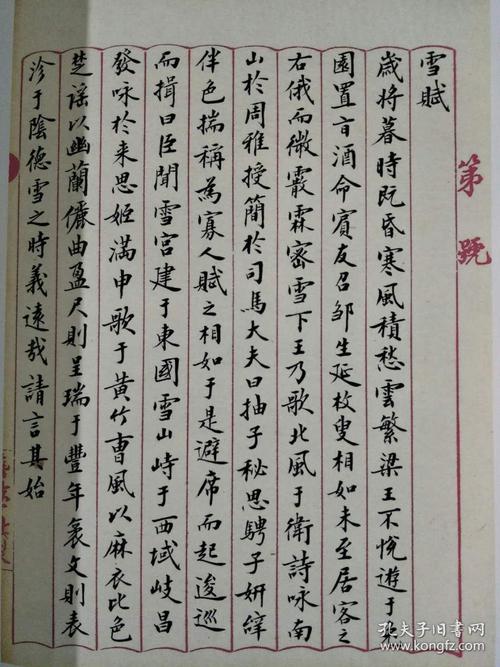 雪賦
歲將暮時既昏寒風積愁雲繁梁王不悅遊于兔
園置旨酒命賓友召鄒生延枚叟相如未至居客之
右俄而微霰霖密雪下王乃歌北風于衛詩咏南
山於周雅授簡於司馬大夫曰抽子秘思騁子妍辭
侔色揣稱為寡人賦之相如于是避席而起逡巡
而揖曰臣聞雪宮建于東國雪山峙于西域岐昌
發咏於来思姬滿申歌于黄竹曹風以麻衣比色
楚谣以幽蘭儷曲盈尺則呈瑞于豐年袤丈則表
沴于陰德雪之時義遠哉請言其始
第 號
孔夫子旧书网
www.kongfz.com